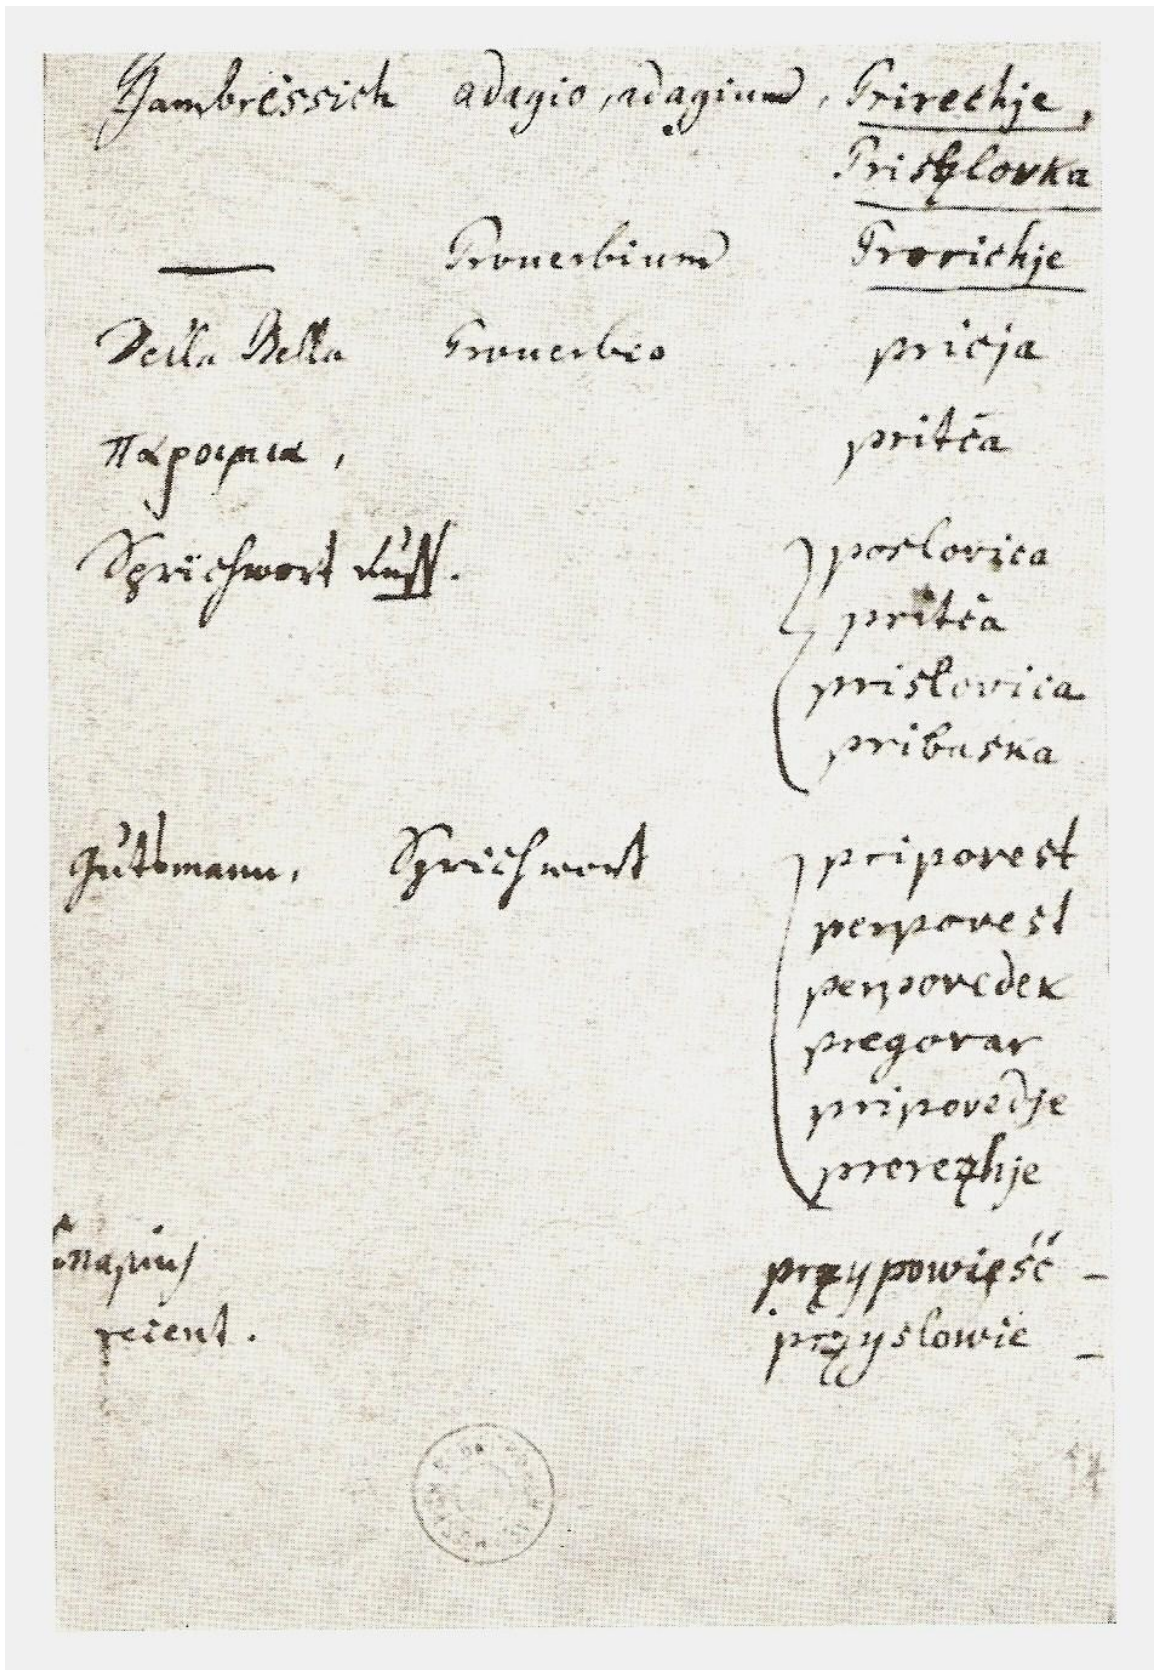 Jambressich adagio, adagium, Prirechje,
Priszlovka
— Prouerbium Prorichje
Della Bella Prouerbio pricja
παροιμια, pritča
Sprichwort Russ. poslovica
pritča
prislovica
pribaska
Gutsmann, Sprichwort pripovest
perpovest
perpovedek
pregovar
pripovedje
prerezhje
Cnapius przypowieść –
recent. przyslowie –